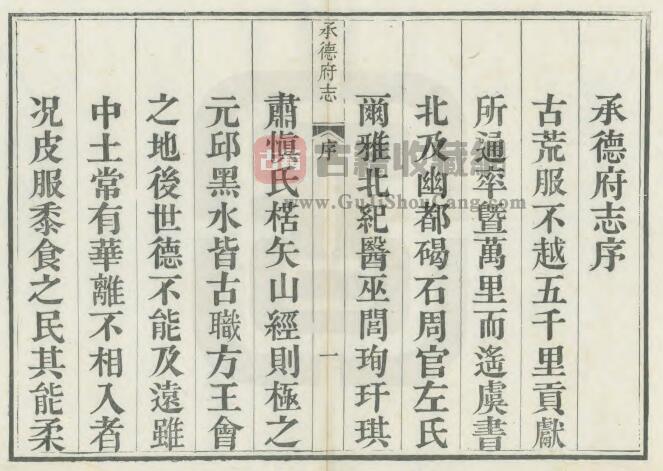 承德府志序
古荒服不越五千里貢獻
所通率曁萬里而遙虞書
北及幽都碣石周官左氏
爾雅北紀醫巫閭珣玗琪
承德府志
序
一
肅愼氏楛矢山經則極之
元邱黑水皆古職方王會
之地後世德不能及遠雖
中土常有華離不相入者
况皮服黍食之民其能柔
古籍收藏網
www.GuJiShouCang.com